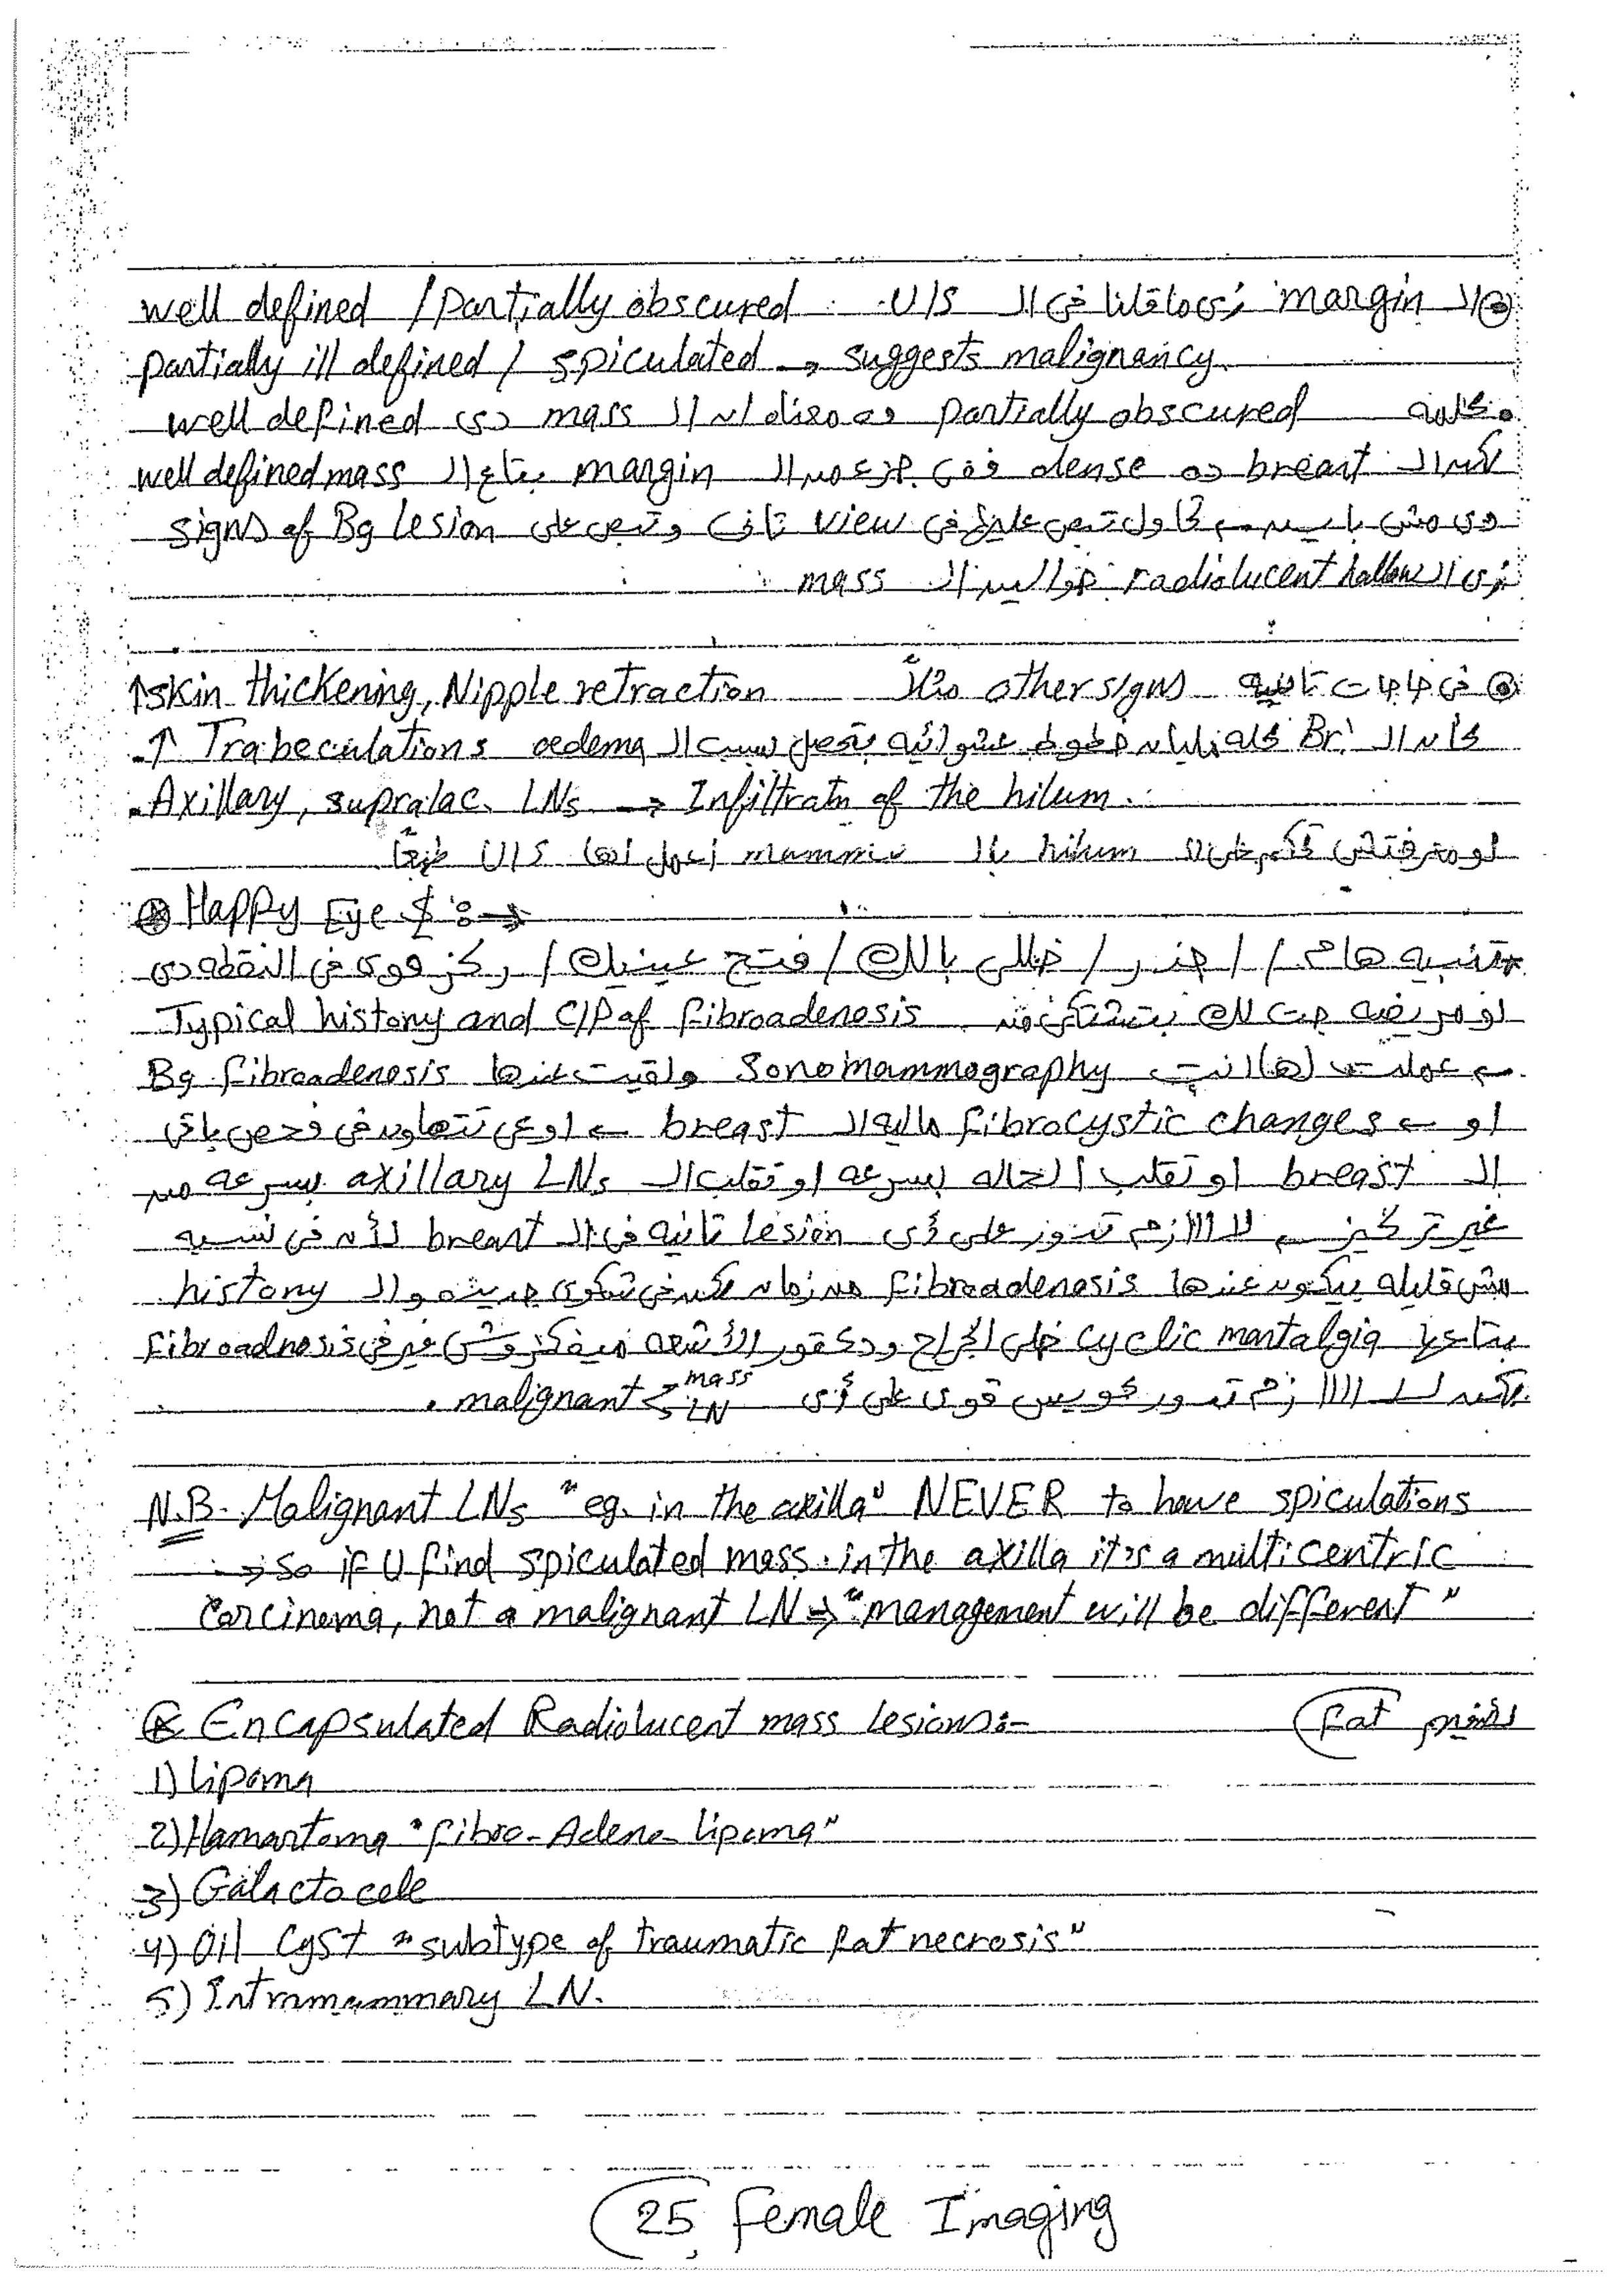 الـ margin زى ما قلنا فى الـ U/S well defined / Partially obscured
Partially ill defined / spiculated → suggests malignancy.
كلمة Partially obscured ده معناه ان الـ mass دى well defined
لكن الـ breast ده dense فغطى جزء من الـ margin بتاع الـ well defined mass
دى مش باينه → حاول تبص عليها فى view تانى وتبص على signs of Bg lesion
زى الـ radiolucent hallow حوالين الـ mass
فى حاجات تانيه other signs مثلاً ↑skin thickening, Nipple retraction
كمان الـ Br. كله خطوط عشوائيه بتحصل بسبب الـ oedema ↑ Trabeculations
Axillary, supralac. LNs → Infiltratn of the hilum.
لو معرفتش تحكم على الـ hilum بالـ mammo اعمل لها U/S طبعاً
Happy Eye $ :→
* تنبيه هام / احذر / خللى بالك / فتح عينيك / ركز قوى فى النقطه دى
لو مريضه جت لك بتشتكى من Typical history and C/P of fibroadenosis
→ عملت لها انت Sonomammography ولقيت عندها Bg. fibroadenosis
او ← fibrocystic changes ماليه الـ breast ← اوعى تتهاون فى فحص باقى
الـ breast او تقلب الحاله بسرعه او تقلب الـ axillary LNs بسرعه من
غير تركيز → لاااازم تدور على أى lesion تانيه فى الـ breast لأن فى نسبه
مش قليله بيكون عندها fibroadenosis من زمان لكن فى شكوى جديده والـ history
بتاعها cyclic mastalgia خلى الجراح ودكتور الأشعه ميفكروش غير فى fibroadnosis
لكن لاااازم تدور كويس قوى على أى mass LN malignant.
N.B. Malignant LNs "eg. in the axilla" NEVER to have spiculations
→ So if U find spiculated mass in the axilla it is a multicentric
Carcinoma, not a malignant LN → "management will be different"
Encapsulated Radiolucent mass lesions:- fat
1) Lipoma
2) Hamartoma "fibro-Adeno-lipoma"
3) Galactocele
4) Oil Cyst "subtype of traumatic fat necrosis"
5) Intramammary LN.
25 Female Imaging